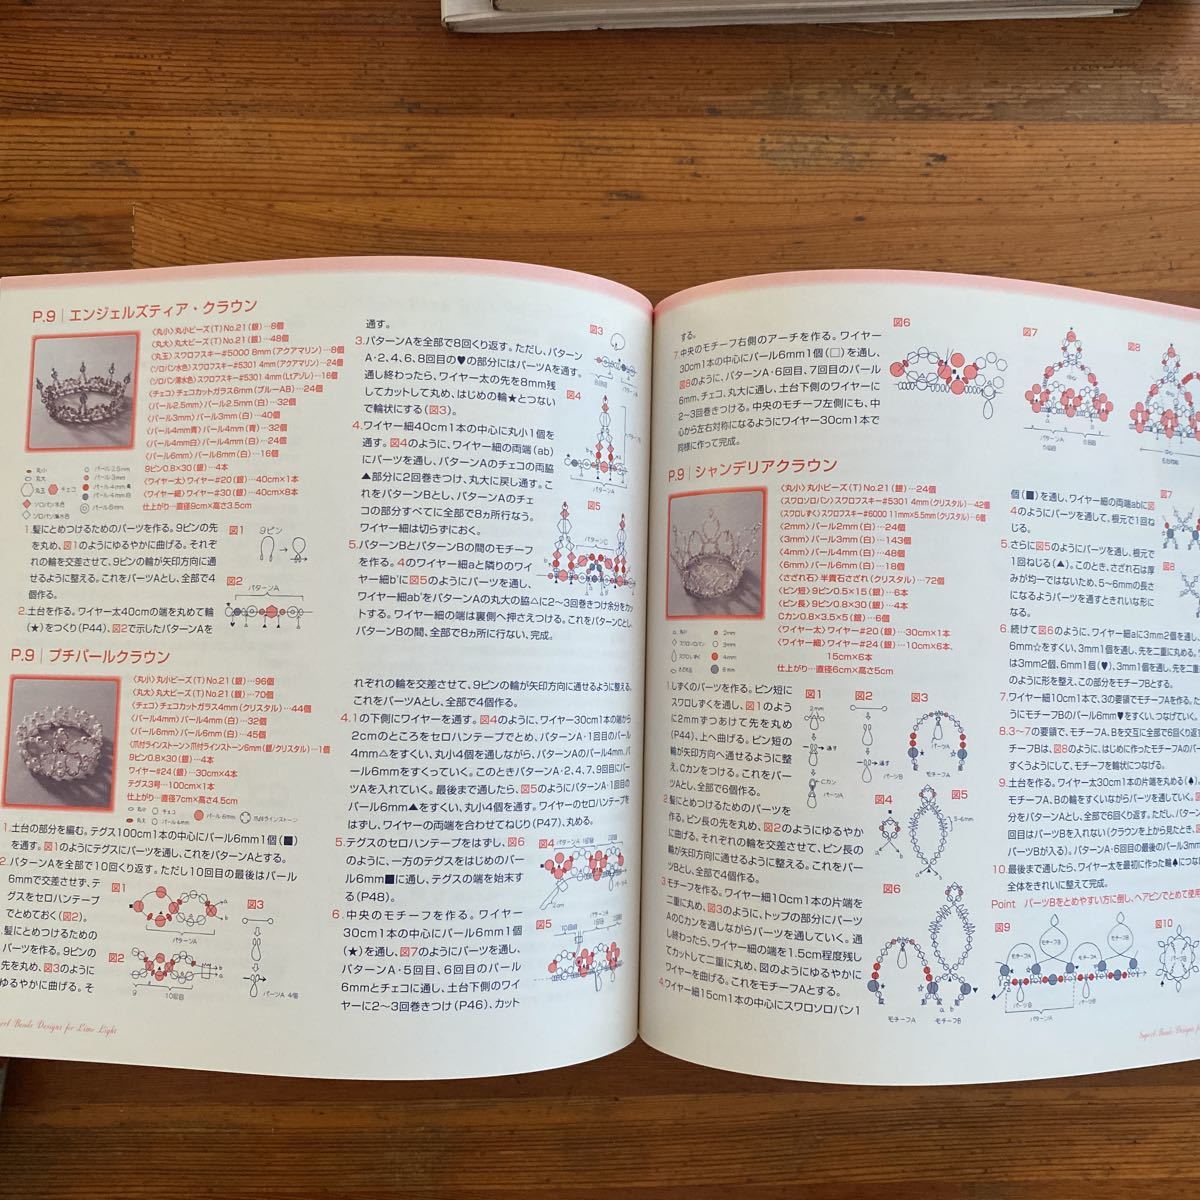 P.9｜エンジェルズティア・クラウン
〈丸小〉丸小ビーズ(T)No.21(銀)…8個
〈丸大〉丸大ビーズ(T)No.21(銀)…48個
〈丸玉〉スワロフスキー#5000 8mm(アクアマリン)…8個
〈ソロバン水色〉スワロフスキー#5301 4mm(アクアマリン)…24個
〈ソロバン薄水色〉スワロフスキー#5301 4mm(Ltアゾレ)…16個
〈チェコ〉チェコカットガラス6mm(ブルーAB)…24個
〈パール2.5mm〉パール2.5mm(白)…32個
〈パール3mm〉パール3mm(白)…40個
〈パール4mm青〉パール4mm(青)…32個
〈パール4mm白〉パール4mm(白)…24個
〈パール6mm〉パール6mm(白)…16個
9ピン0.8×30(銀)…4本
〈ワイヤー太〉ワイヤー#20(銀)…40cm×1本
〈ワイヤー細〉ワイヤー#30(銀)…40cm×8本
仕上がり…直径9cm×高さ3.5cm
丸小
丸大
丸玉
チェコ
ソロバン水色
ソロバン薄水色
パール2.5mm
パール3mm
パール4mm青
パール4mm白
パール6mm
1.髪にとめつけるためのパーツを作る。9ピンの先
を丸め、図1のようにゆるやかに曲げる。それぞ
れの輪を交差させて、9ピンの輪が矢印方向に通
せるように整える。これをパーツAとし、全部で4
個作る。
2.土台を作る。ワイヤー太40cmの端を丸めて輪
(★)をつくり(P44)、図2で示したパターンAを
図1
9ピン
図2
パターンA
通す。
3.パターンAを全部で8回くり返す。ただし、パターン
A・2、4、6、8回目の♥の部分にはパーツAを通す。
通し終わったら、ワイヤー太の先を8mm残
してカットして丸め、はじめの輪★とつない
で輪状にする(図3)。
4.ワイヤー細40cm1本の中心に丸小1個を
通す。図4のように、ワイヤー細の両端(ab)
にパーツを通し、パターンAのチェコの両脇
▲部分に2回巻きつけ、丸大に戻し通す。こ
れをパターンBとし、パターンAのチェ
コの部分すべてに全部で8ヵ所行なう。
ワイヤー細は切らずにおく。
5.パターンBとパターンBの間のモチーフ
を作る。4のワイヤー細aと隣りのワイヤ
ー細b'に図5のようにパーツを通し、
ワイヤー細ab'をパターンAの丸大の脇△に2〜3回巻きつけ余分をカッ
トする。ワイヤー細の端は裏側へ押さえつける。これをパターンCとし、
パターンBの間、全部で8ヵ所に行ない、完成。
図3
8回目
図4
パターンB
パターンA
図5
パターンC
P.9｜プチパールクラウン
〈丸小〉丸小ビーズ(T)No.21(銀)…96個
〈丸大〉丸大ビーズ(T)No.21(銀)…70個
〈チェコ〉チェコカットガラス4mm(クリスタル)…44個
〈パール4mm〉パール4mm(白)…32個
〈パール6mm〉パール6mm(白)…45個
〈爪付ラインストーン〉爪付ラインストーン6mm(銀/クリスタル)…1個
9ピン0.8×30(銀)…4本
ワイヤー#24(銀)…30cm×4本
テグス3号…100cm×1本
仕上がり…直径7cm×高さ4.5cm
丸小
丸大
チェコ
パール4mm
パール6mm
爪付ラインストーン
1.土台の部分を編む。テグス100cm1本の中心にパール6mm1個(■)
を通す。図1のようにテグスにパーツを通し、これをパターンAとする。
2.パターンAを全部で10回くり返す。ただし10回目の最後はパール
6mmで交差させず、テ
グスをセロハンテープ
でとめておく(図2)。
髪にとめつけるための
パーツを作る。9ピンの
先を丸め、図3のように
ゆるやかに曲げる。そ
図1
パターンA
図2
9
10回目
図3
パーツA 4個
れぞれの輪を交差させて、9ピンの輪が矢印方向に通せるように整える。
これをパーツAとし、全部で4個作る。
4.1の下側にワイヤーを通す。図4のように、ワイヤー30cm1本の端から
2cmのところをセロハンテープでとめ、パターンA・1回目のパール
4mm△をすくい、丸小4個を通しながら、パターンAのパール4mm、パ
ール6mmをすくっていく。このときパターンA・2、4、7、9回目にパーツ
Aを入れていく。最後まで通したら、図5のようにパターンA・1回目の
パール6mm▲をすくい、丸小4個を通す。ワイヤーのセロハンテープを
はずし、ワイヤーの両端を合わせてねじり(P47)、丸める。
5.テグスのセロハンテープをはずし、図6
のように、一方のテグスをはじめのパー
ル6mm■に通し、テグスの端を始末す
る(P48)。
6.中央のモチーフを作る。ワイヤー
30cm1本の中心にパール6mm1個
(★)を通し、図7のようにパーツを通し、
パターンA・5回目、6回目のパール
6mmとチェコに通し、土台下側のワイ
ヤーに2〜3回巻きつけ(P46)、カット
図4
2cm
図5
10回目
Superl Beads Designs for Lime Light
する。
7.中央のモチーフ右側のアーチを作る。ワイヤー
30cm1本の中心にパール6mm1個(□)を通し、
図8のように、パターンA・6回目、7回目のパール
6mm、チェコ、丸大に通し、土台下側のワイヤーに
2〜3回巻きつける。中央のモチーフ左側にも、中
心から左右対称になるようにワイヤー30cm1本で
同様に作って完成。
図6
図7
中心
パターンA
図8
P.9｜シャンデリアクラウン
〈丸小〉丸小ビーズ(T)No.21(銀)…24個
〈スワロソロバン〉スワロフスキー#5301 4mm(クリスタル)…42個
〈スワロしずく〉スワロフスキー#6000 11mm×5.5mm(クリスタル)…6個
〈2mm〉パール2mm(白)…24個
〈3mm〉パール3mm(白)…143個
〈4mm〉パール4mm(白)…48個
〈6mm〉パール6mm(白)…18個
〈さざれ石〉半貴石さざれ(クリスタル)…72個
〈ピン短〉9ピン0.5×15(銀)…6本
〈ピン長〉9ピン0.8×30(銀)…4本
Cカン0.8×3.5×5(銀)…6個
〈ワイヤー太〉ワイヤー#20(銀)…30cm×1本
〈ワイヤー細〉ワイヤー#24(銀)…10cm×6本、
15cm×6本
仕上がり…直径6cm×高さ5cm
丸小
スワロソロバン
スワロしずく
さざれ石
2mm
3mm
4mm
6mm
1.しずくのパーツを作る。ピン短に
スワロしずくを通し、図1のよう
に2mmずつあけて先を丸め
(P44)、上へ曲げる。ピン短の
輪が矢印方向へ通せるように整
え、Cカンをつける。これをパー
ツAとし、全部で6個作る。
2.髪にとめつけるためのパーツを
作る。ピン長の先を丸め、図2のようにゆるやか
に曲げる。それぞれの輪を交差させて、ピン長の
輪が矢印方向に通せるように整える。これをパー
ツBとし、全部で4個作る。
3.モチーフを作る。ワイヤー細10cm1本の片端を
二重に丸め、図3のように、トップの部分にパーツ
AのCカンを通しながらパーツを通していく。通
し終わったら、ワイヤー細の端を1.5cm程度残し
てカットして二重に丸め、図のようにゆるやかに
ワイヤーを曲げる。これをモチーフAとする。
4.ワイヤー細15cm1本の中心にスワロソロバン1
図1
2mm
Cカン
パーツA
図2
通す
パーツB
図3
パーツA
モチーフA
図4
図5
5〜6mm
図6
モチーフA
モチーフB
個(■)を通し、ワイヤー細の両端abに図
4のようにパーツを通して、根元で1回ねじ
る。
5.さらに図5のようにパーツを通し、根元で
1回ねじる(▲)。このとき、さざれ石は厚
みが均一ではないため、5〜6mmの長さ
になるようにパーツを通すときれいな形に
なる。
6.続けて図6のように、ワイヤー細aに3mm2個を通し、
6mm☆をすくい、3mm1個を通し、先を二重に丸める。
は3mm2個、6mm1個(♥)、3mm1個を通し、先を二
のように形を整え、この部分をモチーフBとする。
7.ワイヤー細10cm1本で、3の要領でモチーフAを作る。ただ
うにモチーフBのパール6mm♥をすくい、つなげていく。
8.3〜7の要領で、モチーフA、Bを交互に全部で6回くり返す
チーフBは、図8のように、はじめに作ったモチーフAのパー
すくうようにして、モチーフを輪状につなげる。
9.土台を作る。ワイヤー太30cm1本の片端を丸める(♠)。
モチーフA、Bの輪をすくいながらパーツを通していく。図
分をパターンAとし、全部で6回くり返す。ただし、パターン
回目はパーツBを入れない(クラウンを上から見たとき、
パーツBが入る)。パターンA・6回目の最後のパール3mm
10.最後まで通したら、ワイヤー太を最初に作った輪♠につな
全体をきれいに整えて完成。
Point パーツBをとめやすい方に倒し、ヘアピンでとめて使用
図7
図8
図9
モチーフB
モチーフB
パーツB
パーツB
パターンA
図10
モチーフB